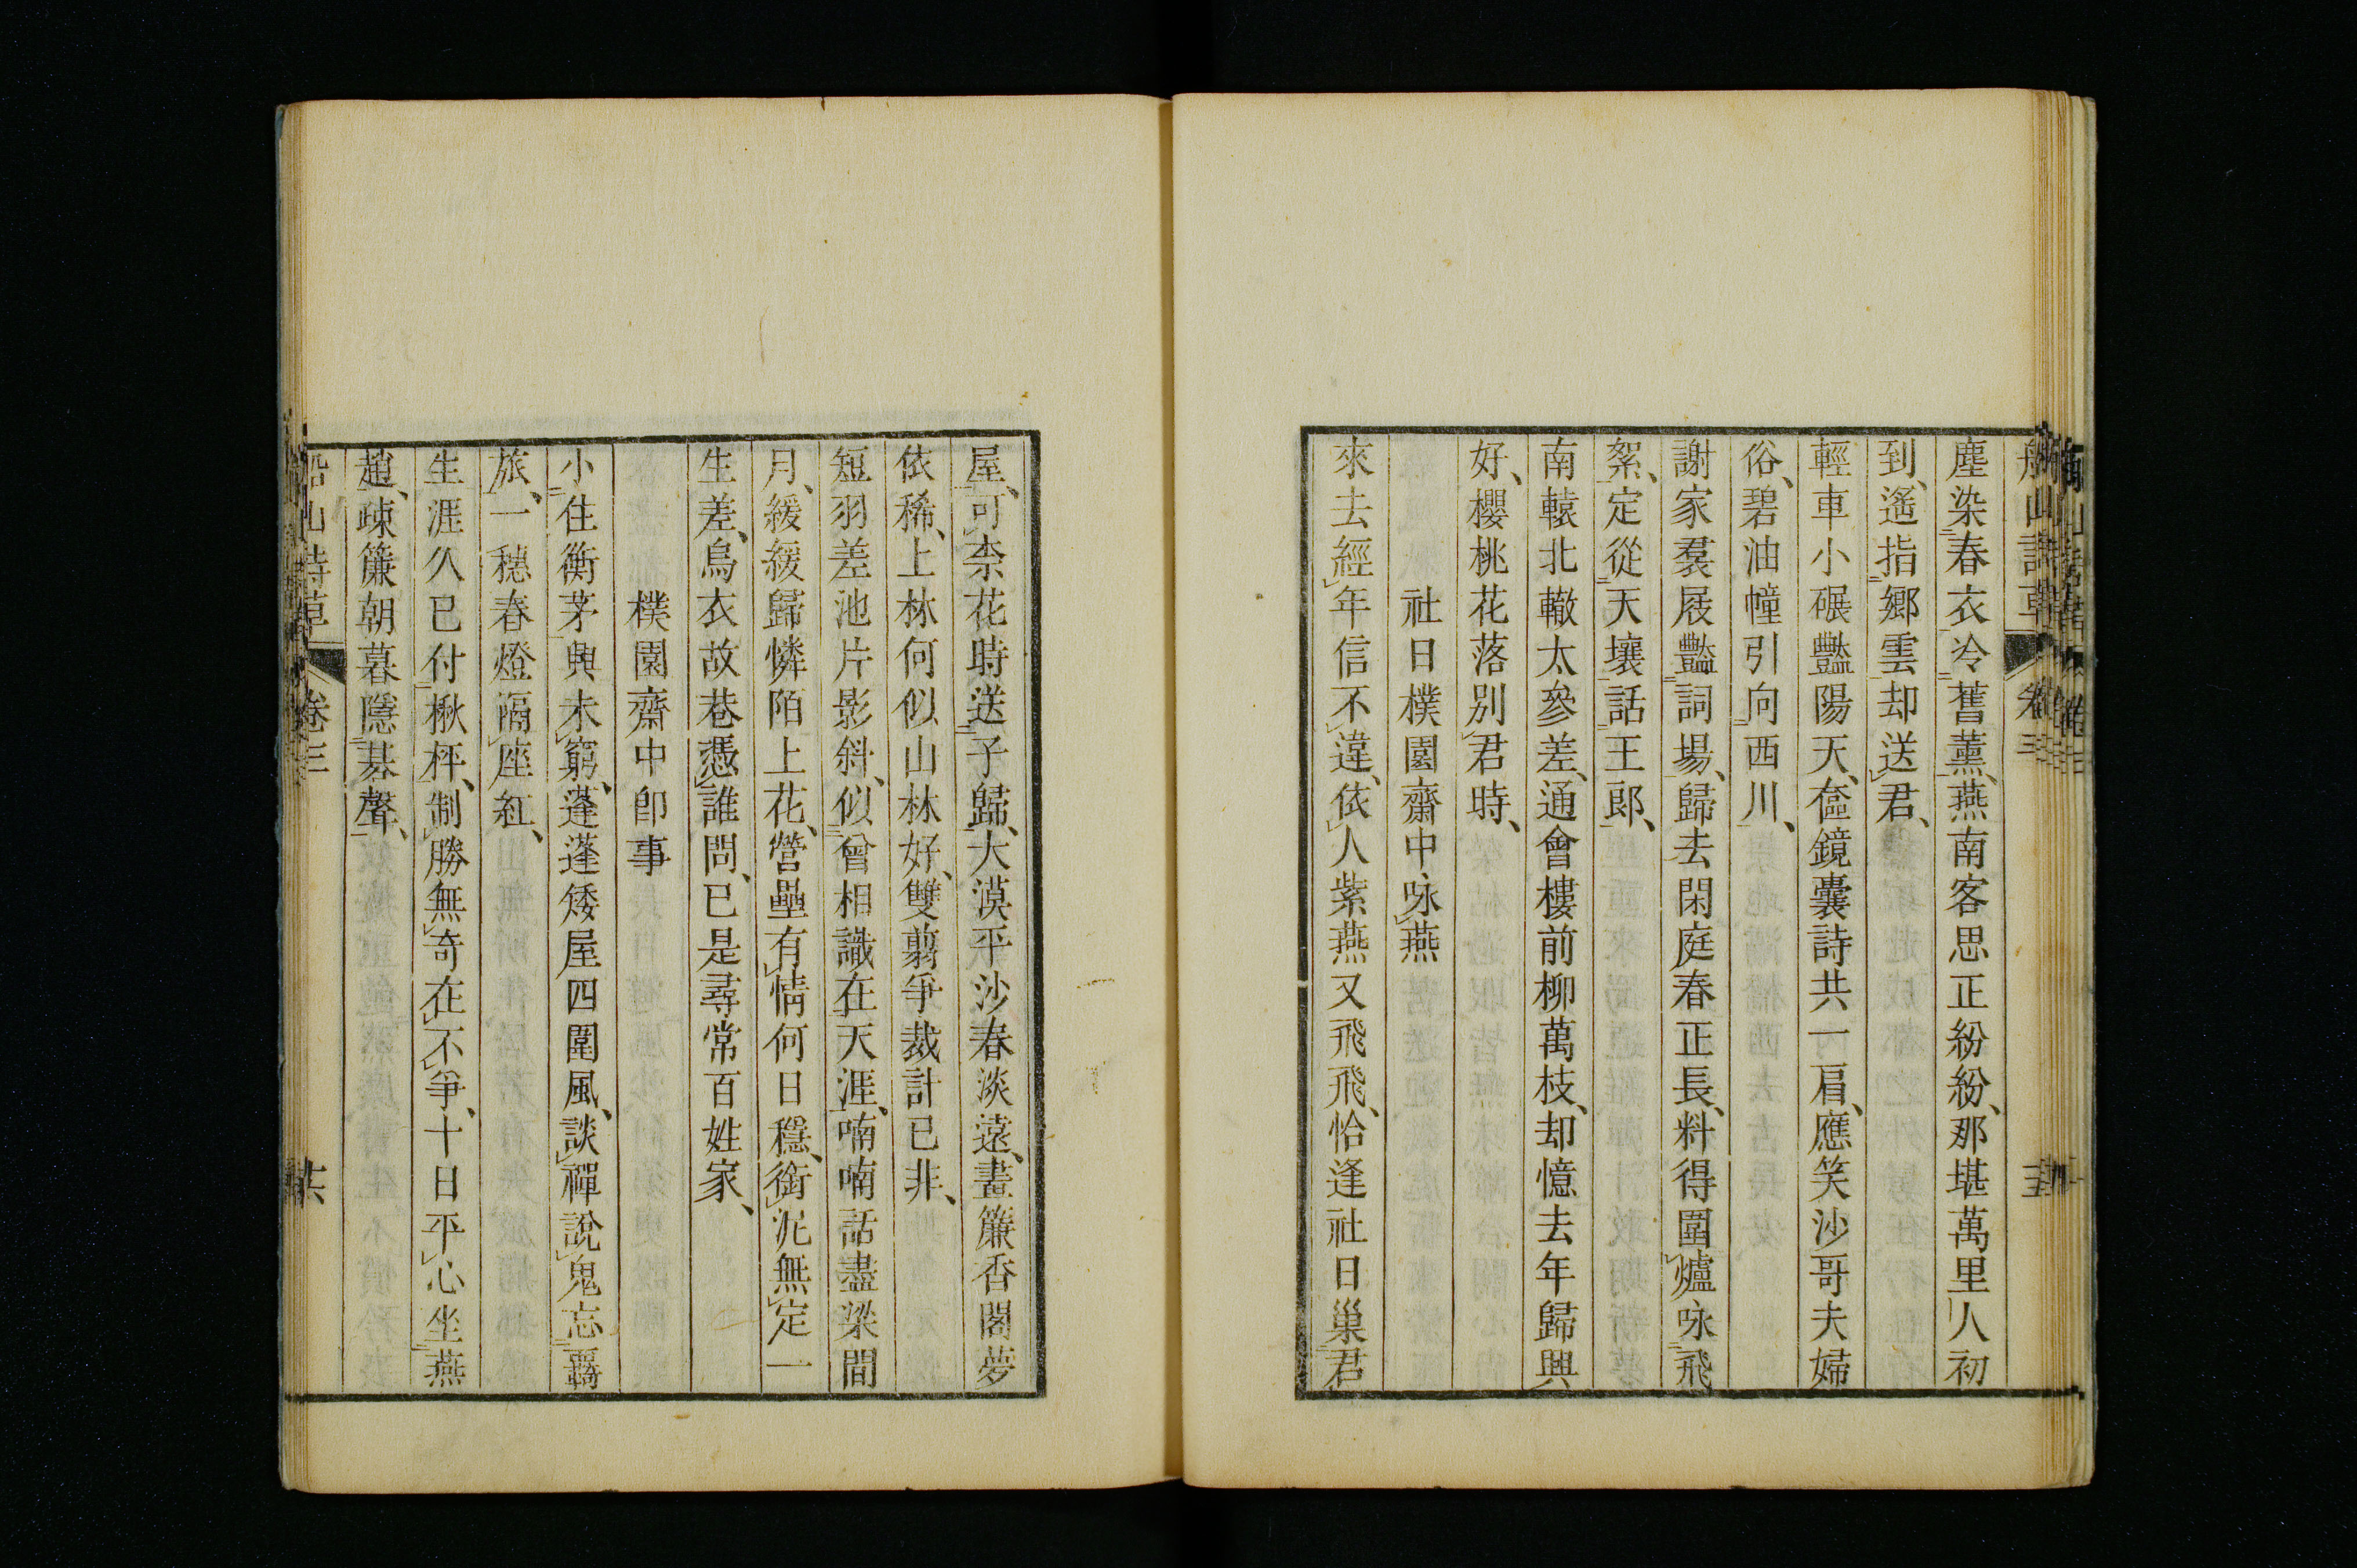 船山詩草 卷三
塵染春衣冷舊薰、燕南客思正紛紛、那堪萬里人初
到、遙指鄉雲却送君、
輕車小碾豔陽天、奩鏡囊詩共一肩、應笑沙哥夫婦
俗、碧油幢引向西川、
謝家羣屐豔詞場、歸去閑庭春正長、料得圍爐咏飛
絮、定從天壤話王郎、
南轅北轍太參差、通會樓前柳萬枝、却憶去年歸興
好、櫻桃花落別君時、
社日樸園齋中咏燕
來去經年信不違、依人紫燕又飛飛、恰逢社日巢君
屋、可柰花時送子歸、大漠平沙春淡遠、畫簾香閣夢
依稀、上林何似山林好、雙翦爭裁計已非、
短羽差池片影斜、似曾相識在天涯、喃喃話盡梁間
月、緩緩歸憐陌上花、營壘有情何日穩、銜泥無定一
生差、烏衣故巷憑誰問、已是尋常百姓家、
樸園齋中卽事
小住衡茅興未窮、蓬蓬矮屋四圍風、談禪說鬼忘羈
旅、一穗春燈隔座紅、
生涯久已付楸枰、制勝無奇在不爭、十日平心坐燕
趙、疎簾朝暮隱棊聲、
船山詩草 卷三 十六